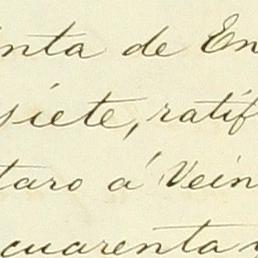 inta de En
siete, ratif
taro á Vein
cuarenta y